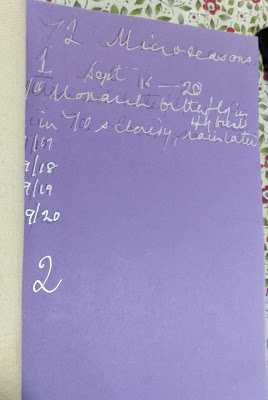 72 Microseasons
1 Sept 16 – 20
Monarch butterfly in
in 70s cloudy, rain later
9/18
9/19
9/20
2